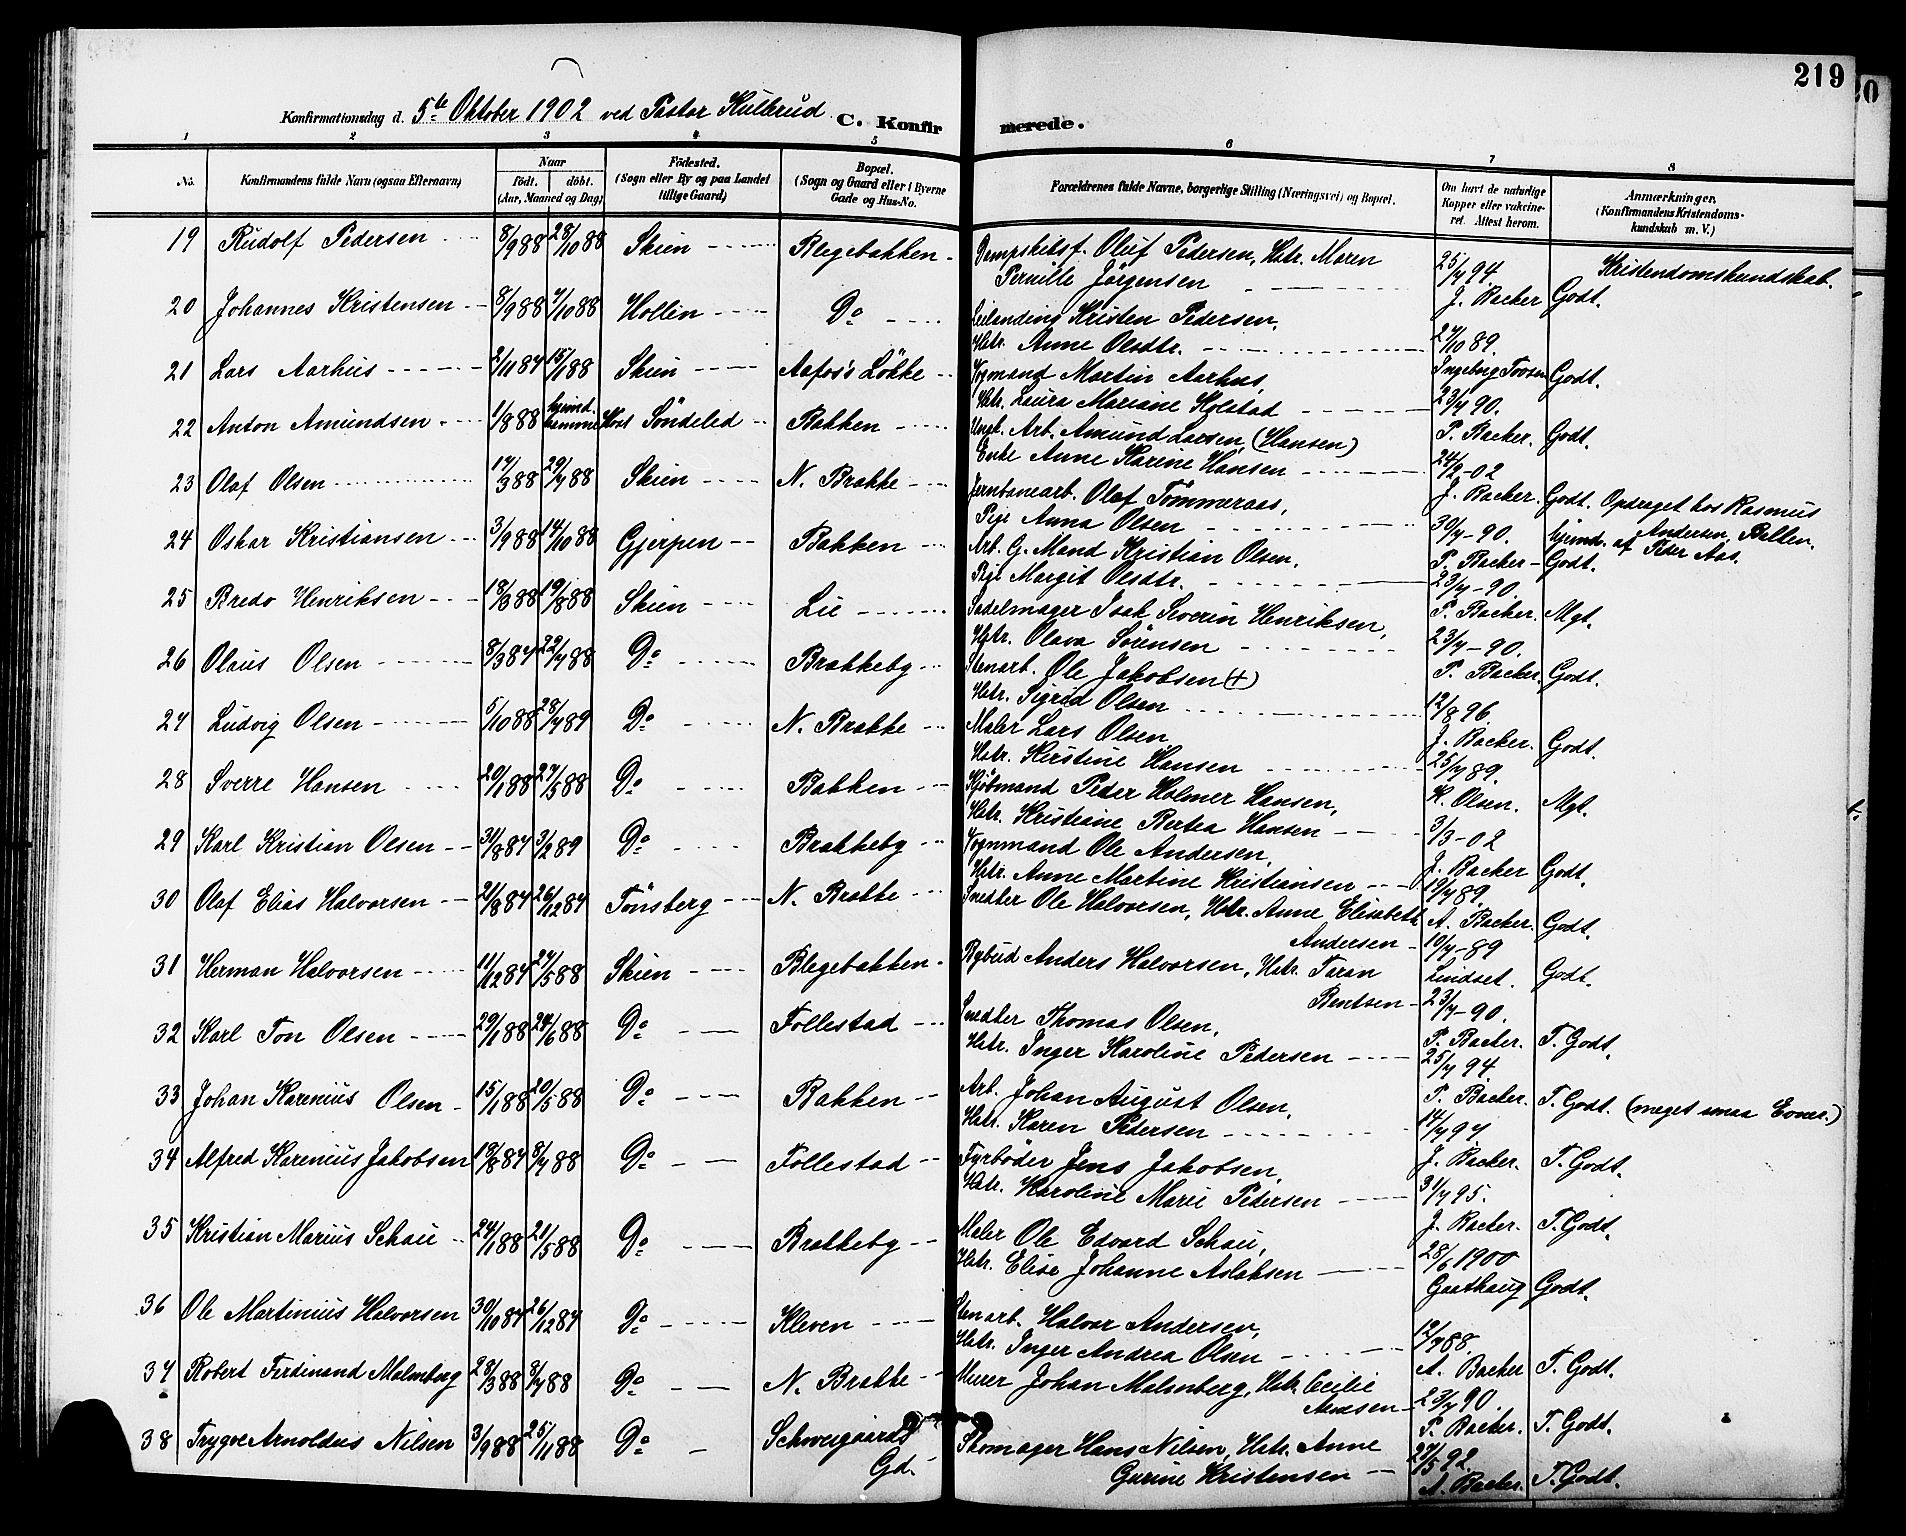 219
Konfirmationsdag d. 5te Oktober 1902 ved Pastor Kulbrud C. Konfirmerede.
1 2 3 4 5 6 7 8
No. Konfirmandens fulde Navn (ogsaa Efternavn) Naar födt. döbt. (Aar, Maaned og Dag) Födested. (Sogn eller By og paa Landet tillige Gaard) Bopæl. (Sogn og Gaard eller i Byerne Gade og Hus-No. Forældrenes fulde Navne, borgerlige Stilling (Næringsvei) og Bopæl. Om havt de naturlige Kopper eller vakcineret. Attest herom. Anmærkninger. (Konfirmandens Kristendomskundskab m. V.)
Kristendomskundskab.
19 Rudolf Pedersen 8/9 88 28/10 88 Skien Blegebakken Dempskibsf. Oluf Pedersen, Hstr. Maren
Pernille Jörgensen 25/7 94. J. Backer Godt.
20 Johannes Kristensen 8/9 88 7/10 88 Hollen Do Leilending Kristen Pedersen,
Hstr. Anne Olsdtr. 27/10 89. Ingeborg Tovsen Godt.
21 Lars Aarhus 2/11 87 15/1 88 Skien Aafos's Lökke Vogmand Martin Aarhus,
Hstr. Laura Mariane Kolstad 23/7 90. P. Backer. Godt.
22 Anton Amundsen 1/8 88 hjemd. hamme Hos Söndeled Bakken Ungk. Arb. Amund Larsen, (Hansen)
Enke Anne Karine Hansen 24/2-02 J. Backer. Godt. Opdraget hos Rasmus
23 Olaf Olsen 17/3 88 29/7 88 Skien N. Brække Jernbanearb. Olaf Tömmeraas,
Pige Anna Olsen 30/7-90. P. Backer - Godt. Andersen, Bellen.
hjemd. af Peder Aas.
24 Oskar Kristiansen 3/9 88 14/10 88 Gjerpen Bakken Arb. G. Mand Kristian Olsen,
Pige Margit Olsdtr. 23/7-90. P. Backer. Mgt.
25 Bredo Henriksen 18/3 88 19/8 88 Skien Lie Sadelmager Isak Severin Henriksen,
Hstr. Olava Sörensen 23/7-90. P. Backer. Godt.
26 Olaus Olsen 8/3 87 22/7 88 Do Brakkeby Stenarb. Ole Jakobsen (+)
Hstr. Sigrid Olsen 12/8 96. J. Backer. Godt.
27 Ludvig Olsen 5/10 88 28/7 89 Do N. Brakke Maler Lars Olsen
Hstr. Kirstine Hansen 25/7 89. K. Olsen. Mgt.
28 Sverre Hansen 20/1 88 27/5 88 Do Bakken Kjöbmand Peder Holmer Hansen,
Hstr. Kristiane Bertea Hansen 3/3-02 J. Backer Godt.
29 Karl Kristian Olsen 31/8 87 3/2 89 Do Brakkeby Vognmand Ole Andersen,
Hstr. Anne Martine Kristiansen 19/7 89. A. Backer. Godt.
30 Olaf Elias Halvorsen 21/8 87 26/12 87 Tönsberg N. Brakke Snedker Ole Halvorsen, Hstr. Anne Elisabeth
Andersen 10/7-89 Lindset. Godt.
31 Herman Halvorsen 11/12 87 27/5 88 Skien Blegebakken Rybud Anders Halvorsen, Hstr. Taran
Bentsen 23/7-90. P. Backer. T. Godt.
32 Karl Ton Olsen 29/1 88 24/6 88 Do Follestad Snedker Thomas Olsen,
Hstr. Inger Karoline Pedersen 25/7 94 P. Backer. T. Godt. (meget smaa Evner.)
33 Johan Karenius Olsen 15/1 88 20/5 88 Do Bakken Arb. Johan August Olsen,
Hstr. Karen Pedersen 14/7 97. J. Backer. T. Godt.
34 Alfred Karenius Jakobsen 19/8 87 8/7 88 Do Follestad Fyrböder Jens Jakobsen,
Hstr. Karoline Marie Pedersen 31/7 95. J. Backer. T. Godt.
35 Kristian Marius Schau 24/1 88 21/5 88 Do Brakkeby Maler Ole Edvard Schau,
Hstr. Elise Johanne Aslaksen 28/6 1900 Gaathaug Godt.
36 Ole Martinius Halvorsen 30/10 87 26/12 87 Do Kleven Stenarb. Halvor Andersen,
Hstr. Inger Andrea Olsen 12/7 88. A. Backer T. Godt.
37 Robert Ferdinand Malmberg 28/3 88 8/7 88 Do N. Brakke Murer Johan Malmberg, Hstr. Cecilie
23/7 90. P. Backer. T. Godt.
38 Trygve Arnoldus Nilsen 3/9 88 25/11 88 Do Schweigaards
Gd. Skomager Hans Nilsen, Hstr. Anne
Gurine Kristensen 27/5 92. A. Backer. T. Godt.